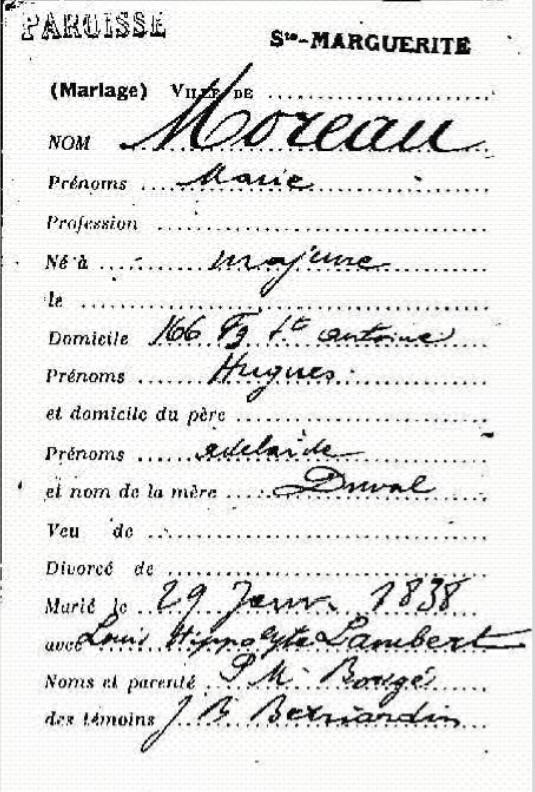 PAROISSE
Ste-MARGUERITE
(Mariage) VILLE DE
NOM Moreau
Prénoms Marie
Profession
Né à majeure
le
Domicile 166 Fg St antoine
Prénoms Hugues
et domicile du père
Prénoms adelaide
et nom de la mère Duval
Veu de
Divorcé de
Marié le 29 Janv. 1838
avec Louis Hippolyte Lambert
Noms et parenté P M Bougé
des témoins J B Bernardin